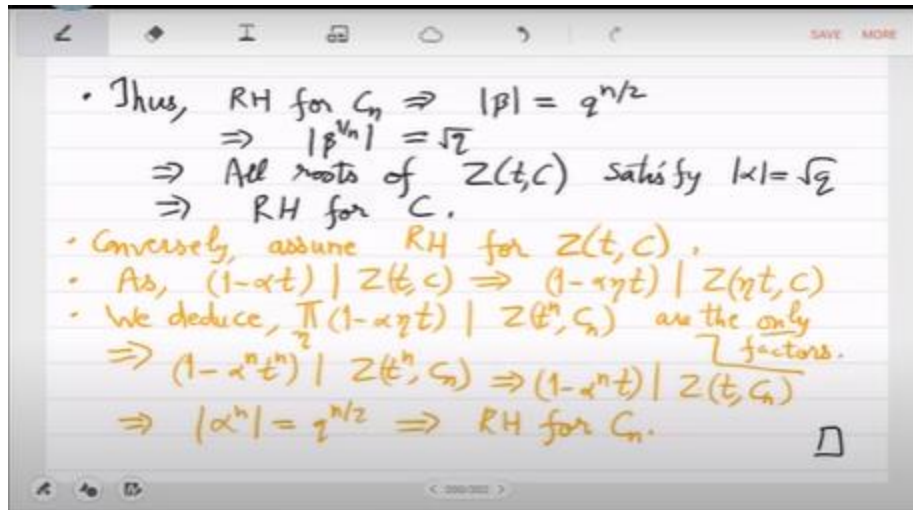 SAVE MORE
• Thus, RH for Cₙ ⇒ |β| = q^{n/2}
⇒ |β^{1/n}| = √q
⇒ All roots of Z(t,C) satisfy |α| = √q
⇒ RH for C.
• Conversely, assume RH for Z(t,C).
• As, (1-αt) | Z(t,C) ⇒ (1-αηt) | Z(ηt,C)
• We deduce, ∏_η (1-αηt) | Z(tⁿ,Cₙ) are the only factors.
⇒ (1-αⁿtⁿ) | Z(tⁿ,Cₙ) ⇒ (1-αⁿt) | Z(t,Cₙ)
⇒ |αⁿ| = q^{n/2} ⇒ RH for Cₙ. □